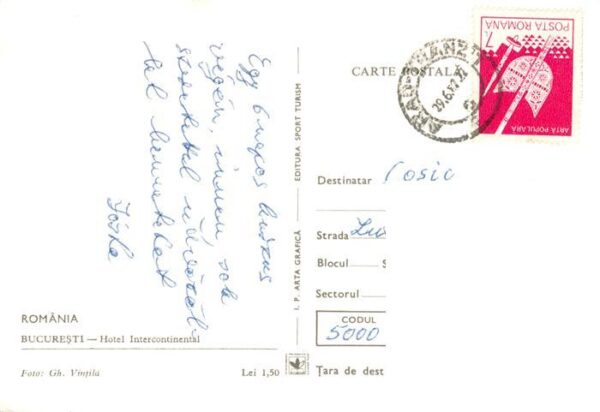 Egy 6 napos
végén, innen, sok
szeretettel
Jóska
ROMÂNIA
BUCUREȘTI — Hotel Intercontinental
Foto: Gh. Vințila
Lei 1,50
I. P. ARTA GRAFICĂ
EDITURA SPORT TURISM
CARTE POSTALĂ
POSTA ROMANA
7 L
ARTĂ POPULARA
Destinatar Cosic
Strada
Blocul S
Sectorul
CODUL
5000
Țara de dest